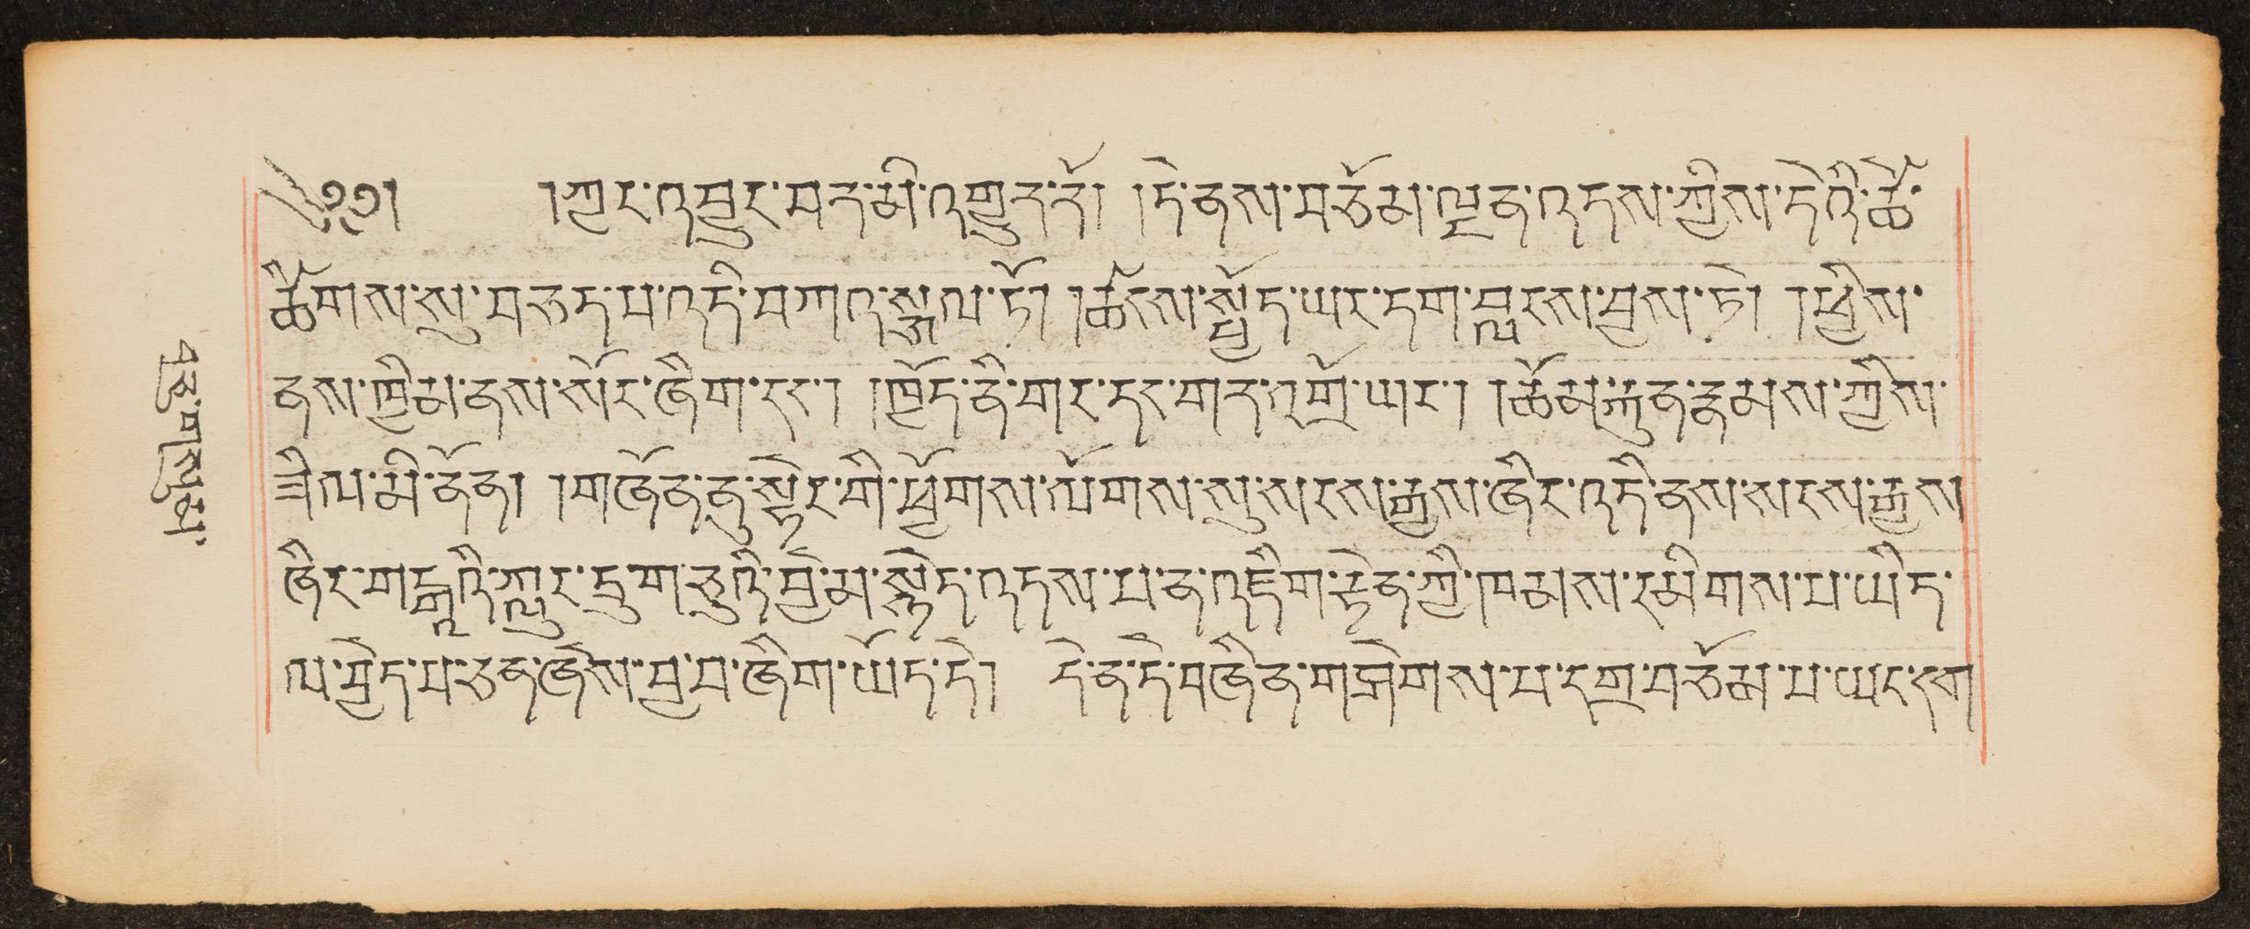 ༄༅། །ཀྱང་འབྱུང་བར་མི་འགྱུར་རོ། །དེ་ནས་བཅོམ་ལྡན་འདས་ཀྱིས་དེའི་ཚེ་
ཚིགས་སུ་བཅད་པ་འདི་བཀའ་སྩལ་ཏོ། །ཚངས་སྤྱོད་ཡང་དག་བླངས་བྱས་ཏེ། །ཕྱིས་
ནས་ཁྱིམ་ནས་སོང་ཞིག་དང་། །ཁྱོད་ནི་གང་དང་གང་འགྲོ་ཡང་། །ཆོམ་རྐུན་རྣམས་ཀྱིས་
ཟིལ་མི་ནོན། །གཞོན་ནུ་སྟེང་གི་ཕྱོགས་ལོགས་སུ་སངས་རྒྱས་ཞིང་འདི་ནས་སངས་རྒྱས་
ཞིང་གངྒཱའི་ཀླུང་དྲུག་ཅུའི་བྱེ་མ་སྙེད་འདས་པ་ན་འཇིག་རྟེན་གྱི་ཁམས་དམིགས་པ་ཡིད་
ལ་བྱེད་པ་ཅན་ཞེས་བྱ་བ་ཞིག་ཡོད་དེ། དེ་ན་དེ་བཞིན་གཤེགས་པ་དགྲ་བཅོམ་པ་ཡང་དག